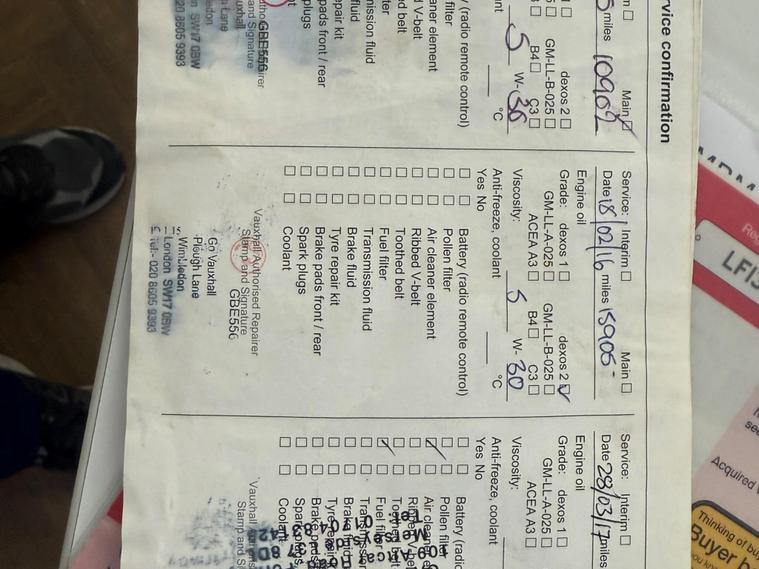 rvice confirmation
Main
miles 10902
dexos 2
GM-LL-B-025
B4 C3
5 W-30
°C
y (radio remote control)
filter
eaner element
d V-belt
ed belt
ter
mission fluid
fluid
epair kit
pads front / rear
plugs
nt
GBE556
London SW17 0BW
020 8605 9393
Service: Interim Main
Date 18/02/16 miles 15905-
Engine oil
Grade: dexos 1 dexos 2
GM-LL-A-025 GM-LL-B-025
ACEA A3 B4 C3
Viscosity: 5 W-30
Anti-freeze, coolant °C
Yes No
Battery (radio remote control)
Pollen filter
Air cleaner element
Ribbed V-belt
Toothed belt
Fuel filter
Transmission fluid
Brake fluid
Tyre repair kit
Brake pads front / rear
Spark plugs
Coolant
Vauxhall Authorised Repairer
Stamp and Signature
GBE556
Go Vauxhall
Plough Lane
Wimbledon
London SW17 0BW
Tel:- 020 8605 9393
Service: Interim
Date 28/03/17 miles
Engine oil
Grade: dexos 1
GM-LL-A-025
ACEA A3
Viscosity:
Anti-freeze, coolant
Yes No
Battery (radio
Pollen filter
Air cleaner
Fuel
Coolant
Vauxhall
Stamp and S
Reg
LF13
Acquired
Thinking of buy
Buyer